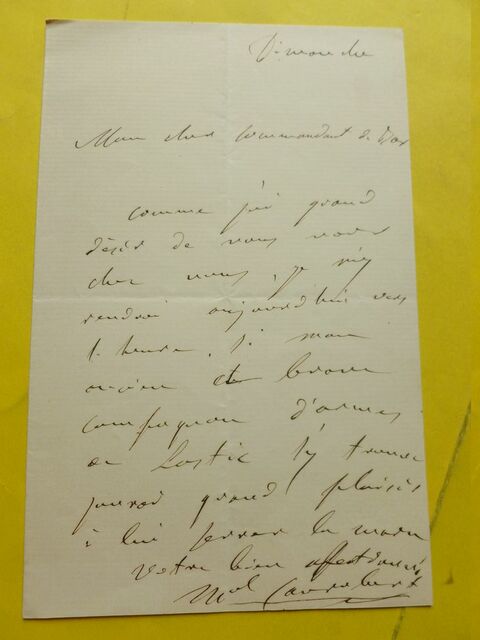 Dimanche
Mon cher Commandant de
comme j'ai grand
désir de vous voir
chez vous, je m'y
rendrai aujourd'hui vers
1 heure. Si mon
ancien et brave
compagnon d'armes
de Lastic s'y trouve
j'aurai grand plaisir
à lui serrer la main
Votre bien affectionné
Mal Canrobert